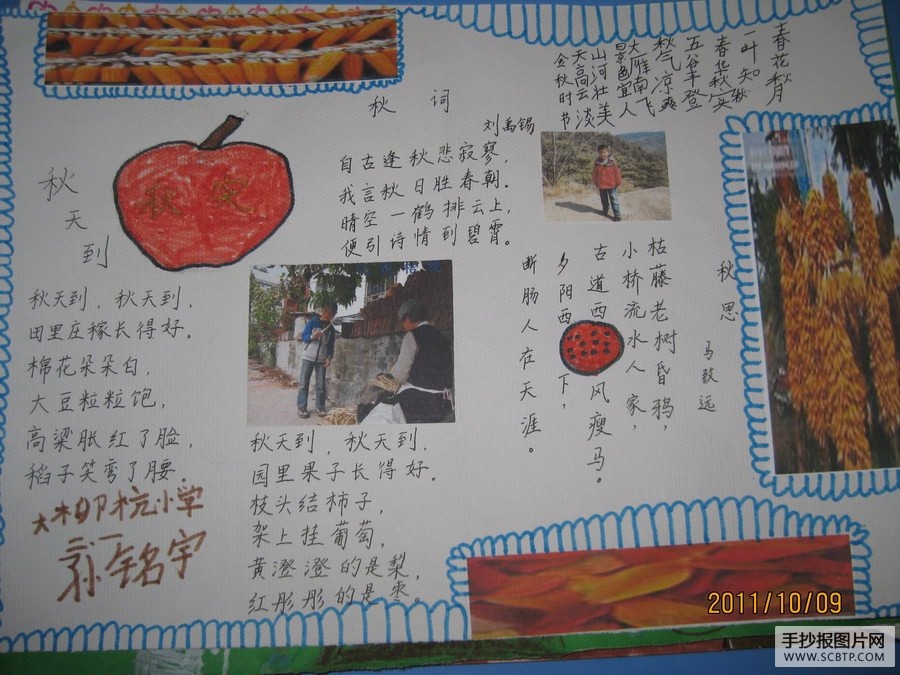 秋天到
秋实
秋天到，秋天到，
田里庄稼长得好。
棉花朵朵白，
大豆粒粒饱，
高粱胀红了脸，
稻子笑弯了腰。
小学
三.一
孙铭宇
秋词
刘禹锡
自古逢秋悲寂寥，
我言秋日胜春朝。
晴空一鹤排云上，
便引诗情到碧霄。
秋天到，秋天到，
园里果子长得好。
枝头结柿子，
架上挂葡萄，
黄澄澄的是梨，
红彤彤的是枣。
春花秋月
一叶知秋
春华秋实
五谷丰登
秋气凉爽
大雁南飞
景色宜人
山河壮美
天高云淡
金秋时节
秋思
马致远
枯藤老树昏鸦，
小桥流水人家，
古道西风瘦马。
夕阳西下，
断肠人在天涯。
2011/10/09
手抄报图片网
WWW.SCBTP.COM